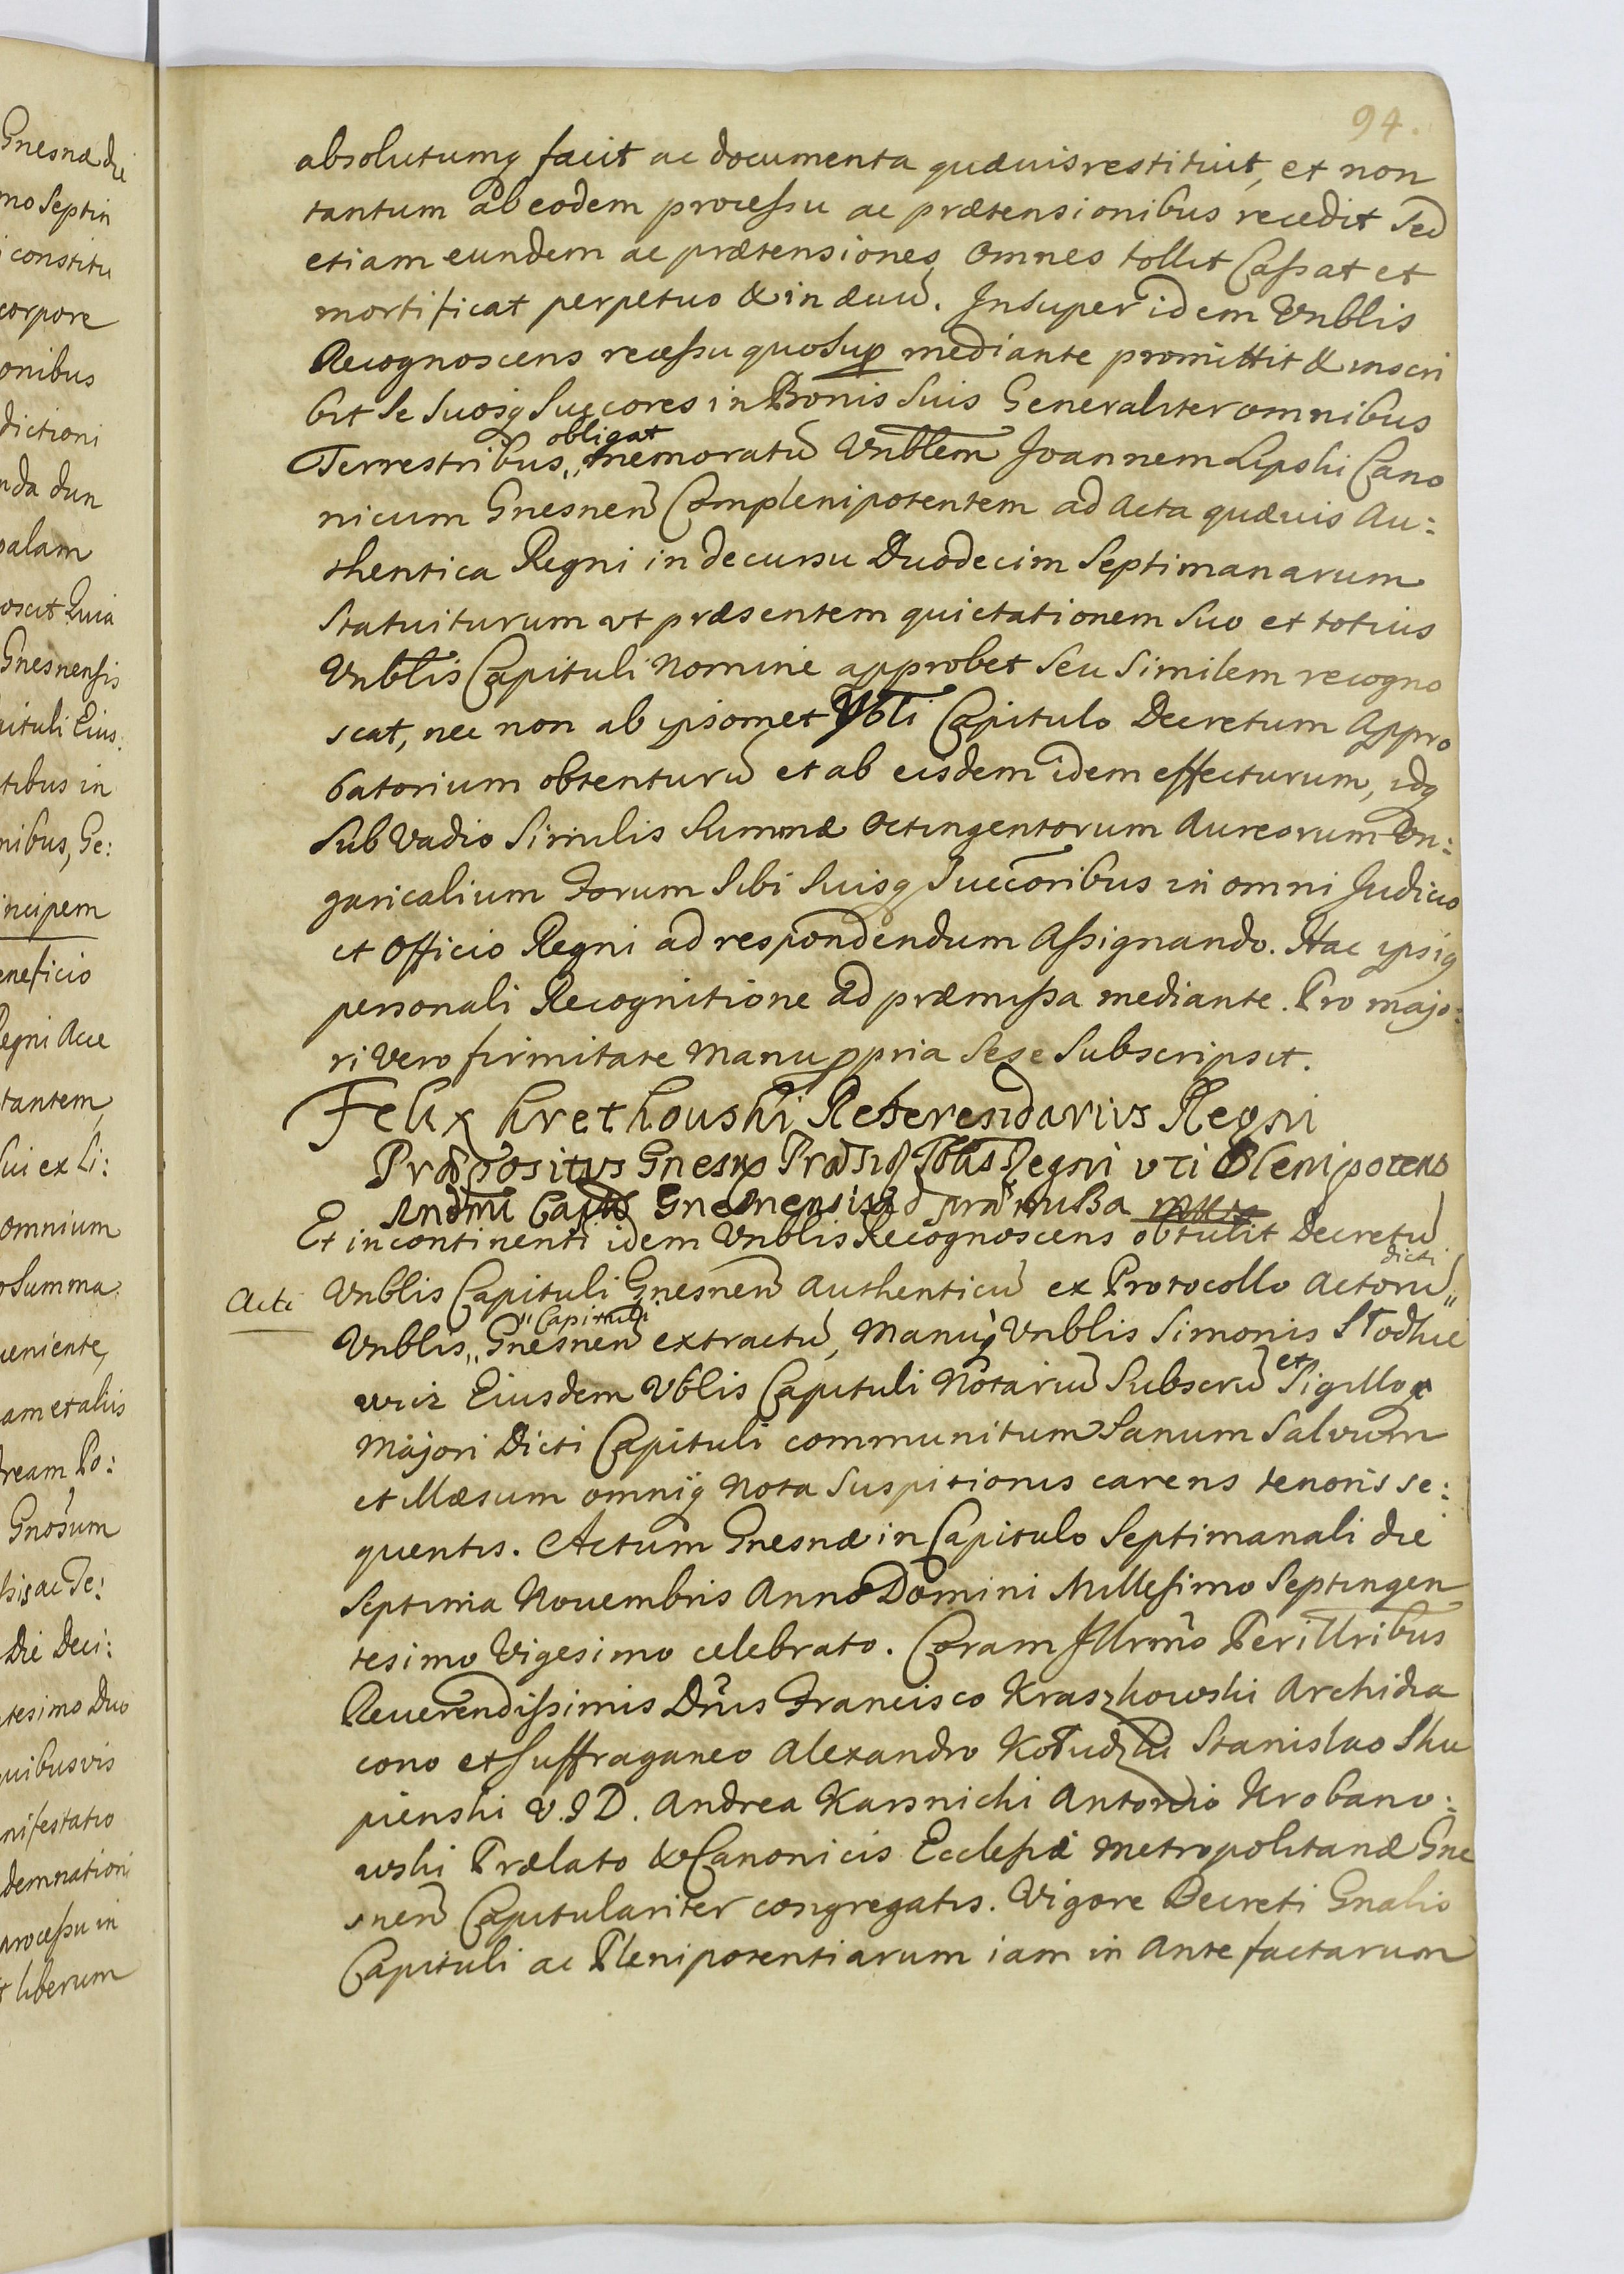 94.
absolutumq facit ac documenta quævis restituit, et non
tantum ab eodem processu ac prætensionibus recedit sed
etiam eundem ac prætensiones omnes tollit Cassat et
mortificat perpetuo & in ævũ. Insuper idem Vnblis
Recognoscens recessu quosup mediante promittit & inscri
bit se suosq Succores in Bonis suis Generaliter omnibus
obligat
Terrestribus,, memoratũ Vnblem Joannem Lipski Cano
nicum Gnesneñ Complenipotentem ad Acta quævis Au:
thentica Regni in decursu Duodecim Septimanarum
statuiturum vt præsentem quietationem suo et totius
Vnblis Capituli nomine approbet seu similem recogno
scat, nec non ab ipsomet Vbli Capitulo Decretum Appro
batorium obtenturũ et ab eisdem idem effecturum, idq
sub Vadio similis summæ Octingentorum Aureorum Vn:
garicalium Forum sibi suisq Succoribus in omni Judicio
et Officio Regni ad respondendum Assignando. Hac ipsiq
personali Recognitione ad præmissa mediante. Pro majo:
ri vero firmitate manu ppria sese subscripsit.
Felix Kretkouski Referendarius Regni
Præpositus Gnesn Regni vti Plenipotens
Gnesnensis ad præmissa
Et incontinenti idem Vnblis Recognoscens obtulit Decretũ
dicti
Acti Vnblis Capituli Gnesneñ Authenticũ ex Protocollo Actorũ,,
,,Capituli
Vnblis,, Gnesneñ extractũ, Manuq Vnblis Simonis Stodkie
wicz Eiusdem Vblis Capituli Notariũ Subscrũ et Sigilloq
Majori Dicti Capituli communitum Sanum Salvum
et illæsum omniq nota suspitionis carens tenoris se:
quentis. Actum Gnesnæ in Capitulo Septimanali die
Septima Novembris Anno Domini Millesimo Septingen
tesimo Vigesimo celebrato. Coram Illrmo Perillribus
Reverendissimis Dnis Francisco Kraszkowski Archidia
cono et Suffraganeo Alexandro Kołudzki Stanislao Sku
pienski V.I.D. Andrea Karsnicki Antonio Krobano:
wski Prælato & Canonicis Ecclesiæ Metropolitanæ Gne
sneñ Capitulariter congregatis. Vigore Decreti Gnalis
Capituli ac Plenipotentiarum iam in Ante factarum